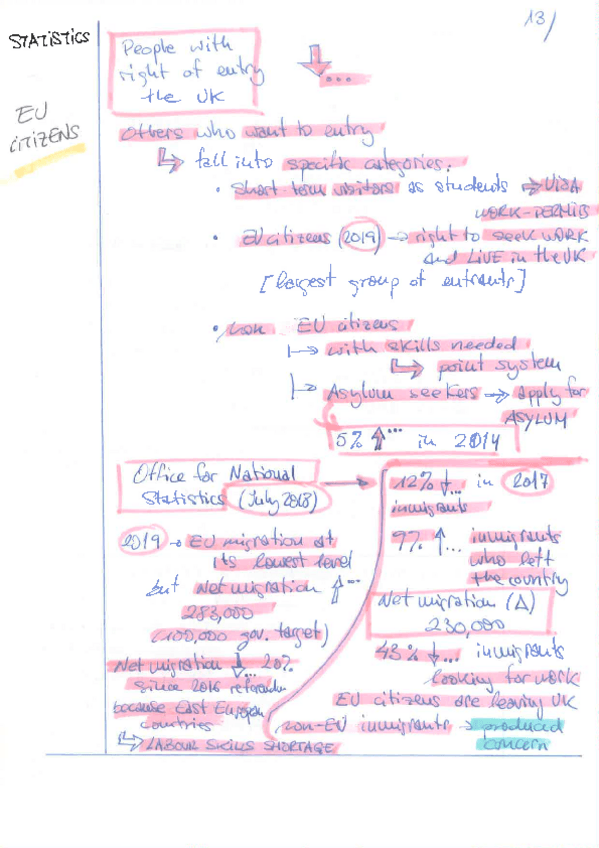 13/
STATISTICS
EU
CITIZENS
People with
right of entry
the UK
↓...
Others who want to entry
↳ fall into specific categories:
• Short term visitors as students ⇒ VISA
WORK-PERMITS
• EU citizens (2019) → right to seek WORK
and LIVE in the UK
[largest group of entrants]
• non EU citizens
↳ with skills needed
↳ point system
↳ Asylum seekers → apply for
ASYLUM
5% ↑... in 2014
Office for National
Statistics (July 2018) →
2019 → EU migration at
its lowest level
but Net migration ↑...
283,000
(100,000 gov. target)
Net migration ↓... 20%
since 2016 referendum
because East European
countries
↳ LABOUR SKILLS SHORTAGE
12% ↓... in 2017
inmigrants
9% ↑... inmigrants
who left
the country
Net migration (Δ)
230,000
43% ↓... inmigrants
looking for work
EU citizens are leaving UK
non-EU inmigrants → produced
concern